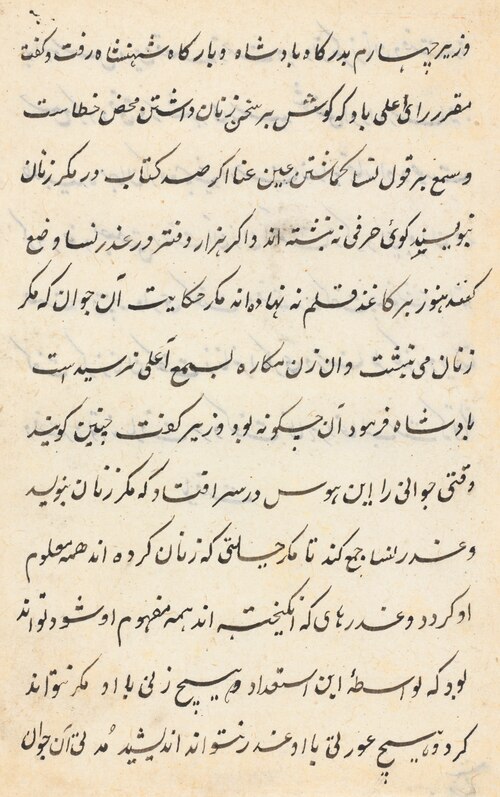 وزیر چهارم بدرگاه بادشاه و بارگاه شهنشاه رفت و گفت
مقرر رائ اعلی باد که گوش بر سخن زنان داشتن محض خطاست
و سمع بر قول نسا گماشتن عین عنا اگر صد کتاب در مکر زنان
نبویسند گوئ حرفی نه نبشته اند و اگر هزار دفتر در غدر نسا وضع
کنند هنوز بر کاغذ قلم نه نهاده اند مکر حکایت آن جوان که مکر
زنان می نبشت و ان زن مکاره بسمع اعلی نرسیده است
بادشاه فرمود آن چگونه بود وزیر گفت چنین گویند
وقتی جوانی را این هوس در سر افتاد که مکر زنان بنویسد
و غدر نسا جمع کند تا مکر حیلتی که زنان کرده اند همه معلوم
او گردد و غدرهای که انگیخته اند همه مفهوم او شود تواند
بود که بواسطهٔ این استعداد هیچ زنی با او مکر نتواند
کرد و هیچ عورتی با او غدر نتواند اندیشید مدتی آن جوان